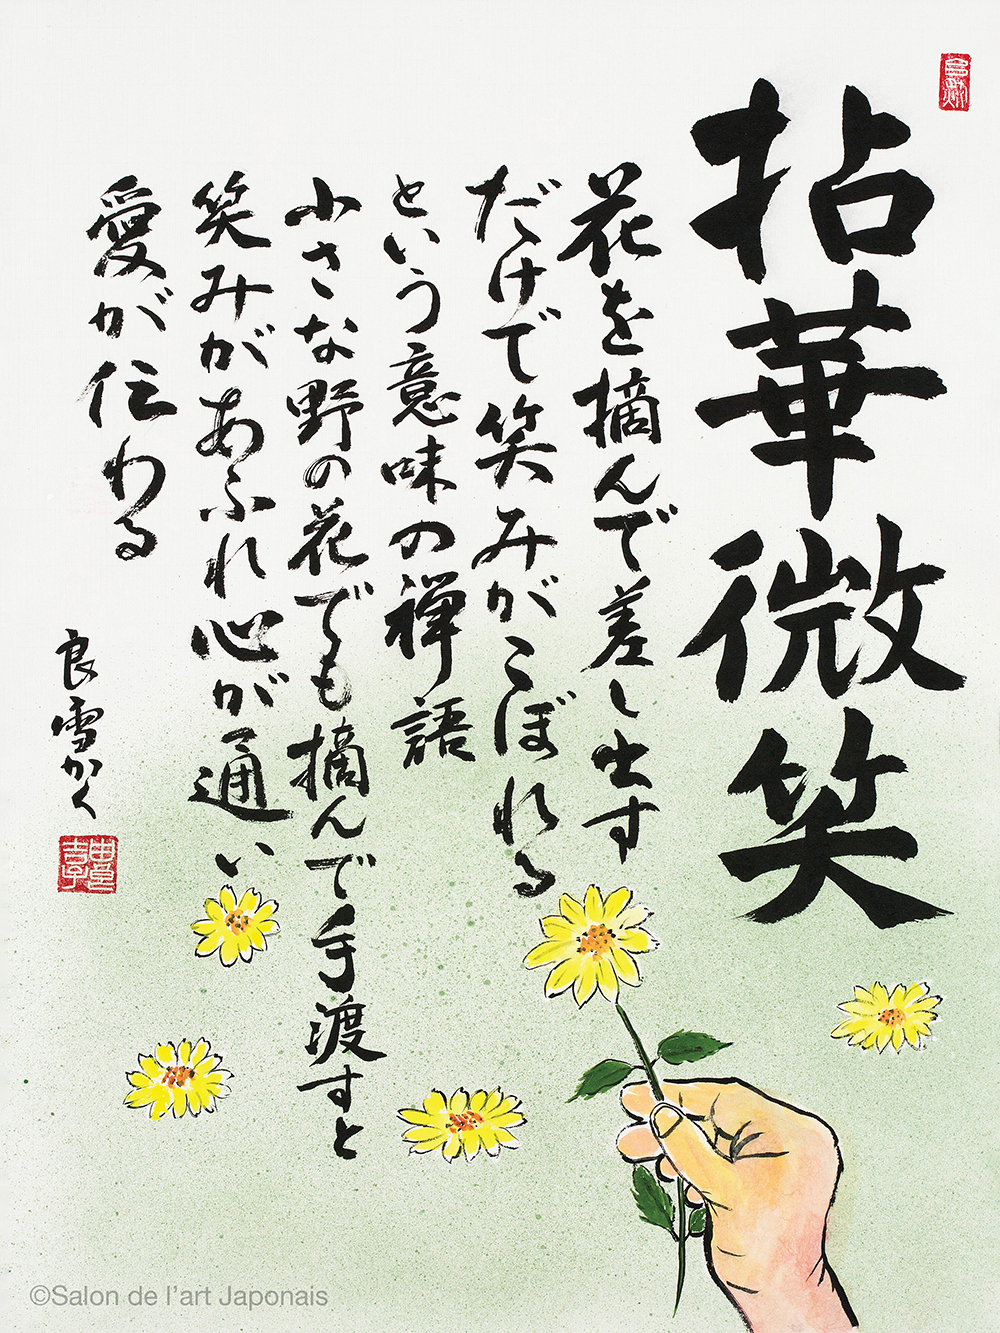 拈華微笑
花を摘んで差し出す
だけで笑みがこぼれる
という意味の禅語
小さな野の花でも摘んで手渡すと
笑みがあふれ心が通い
愛が伝わる
良雪かく
©Salon de l'art Japonais